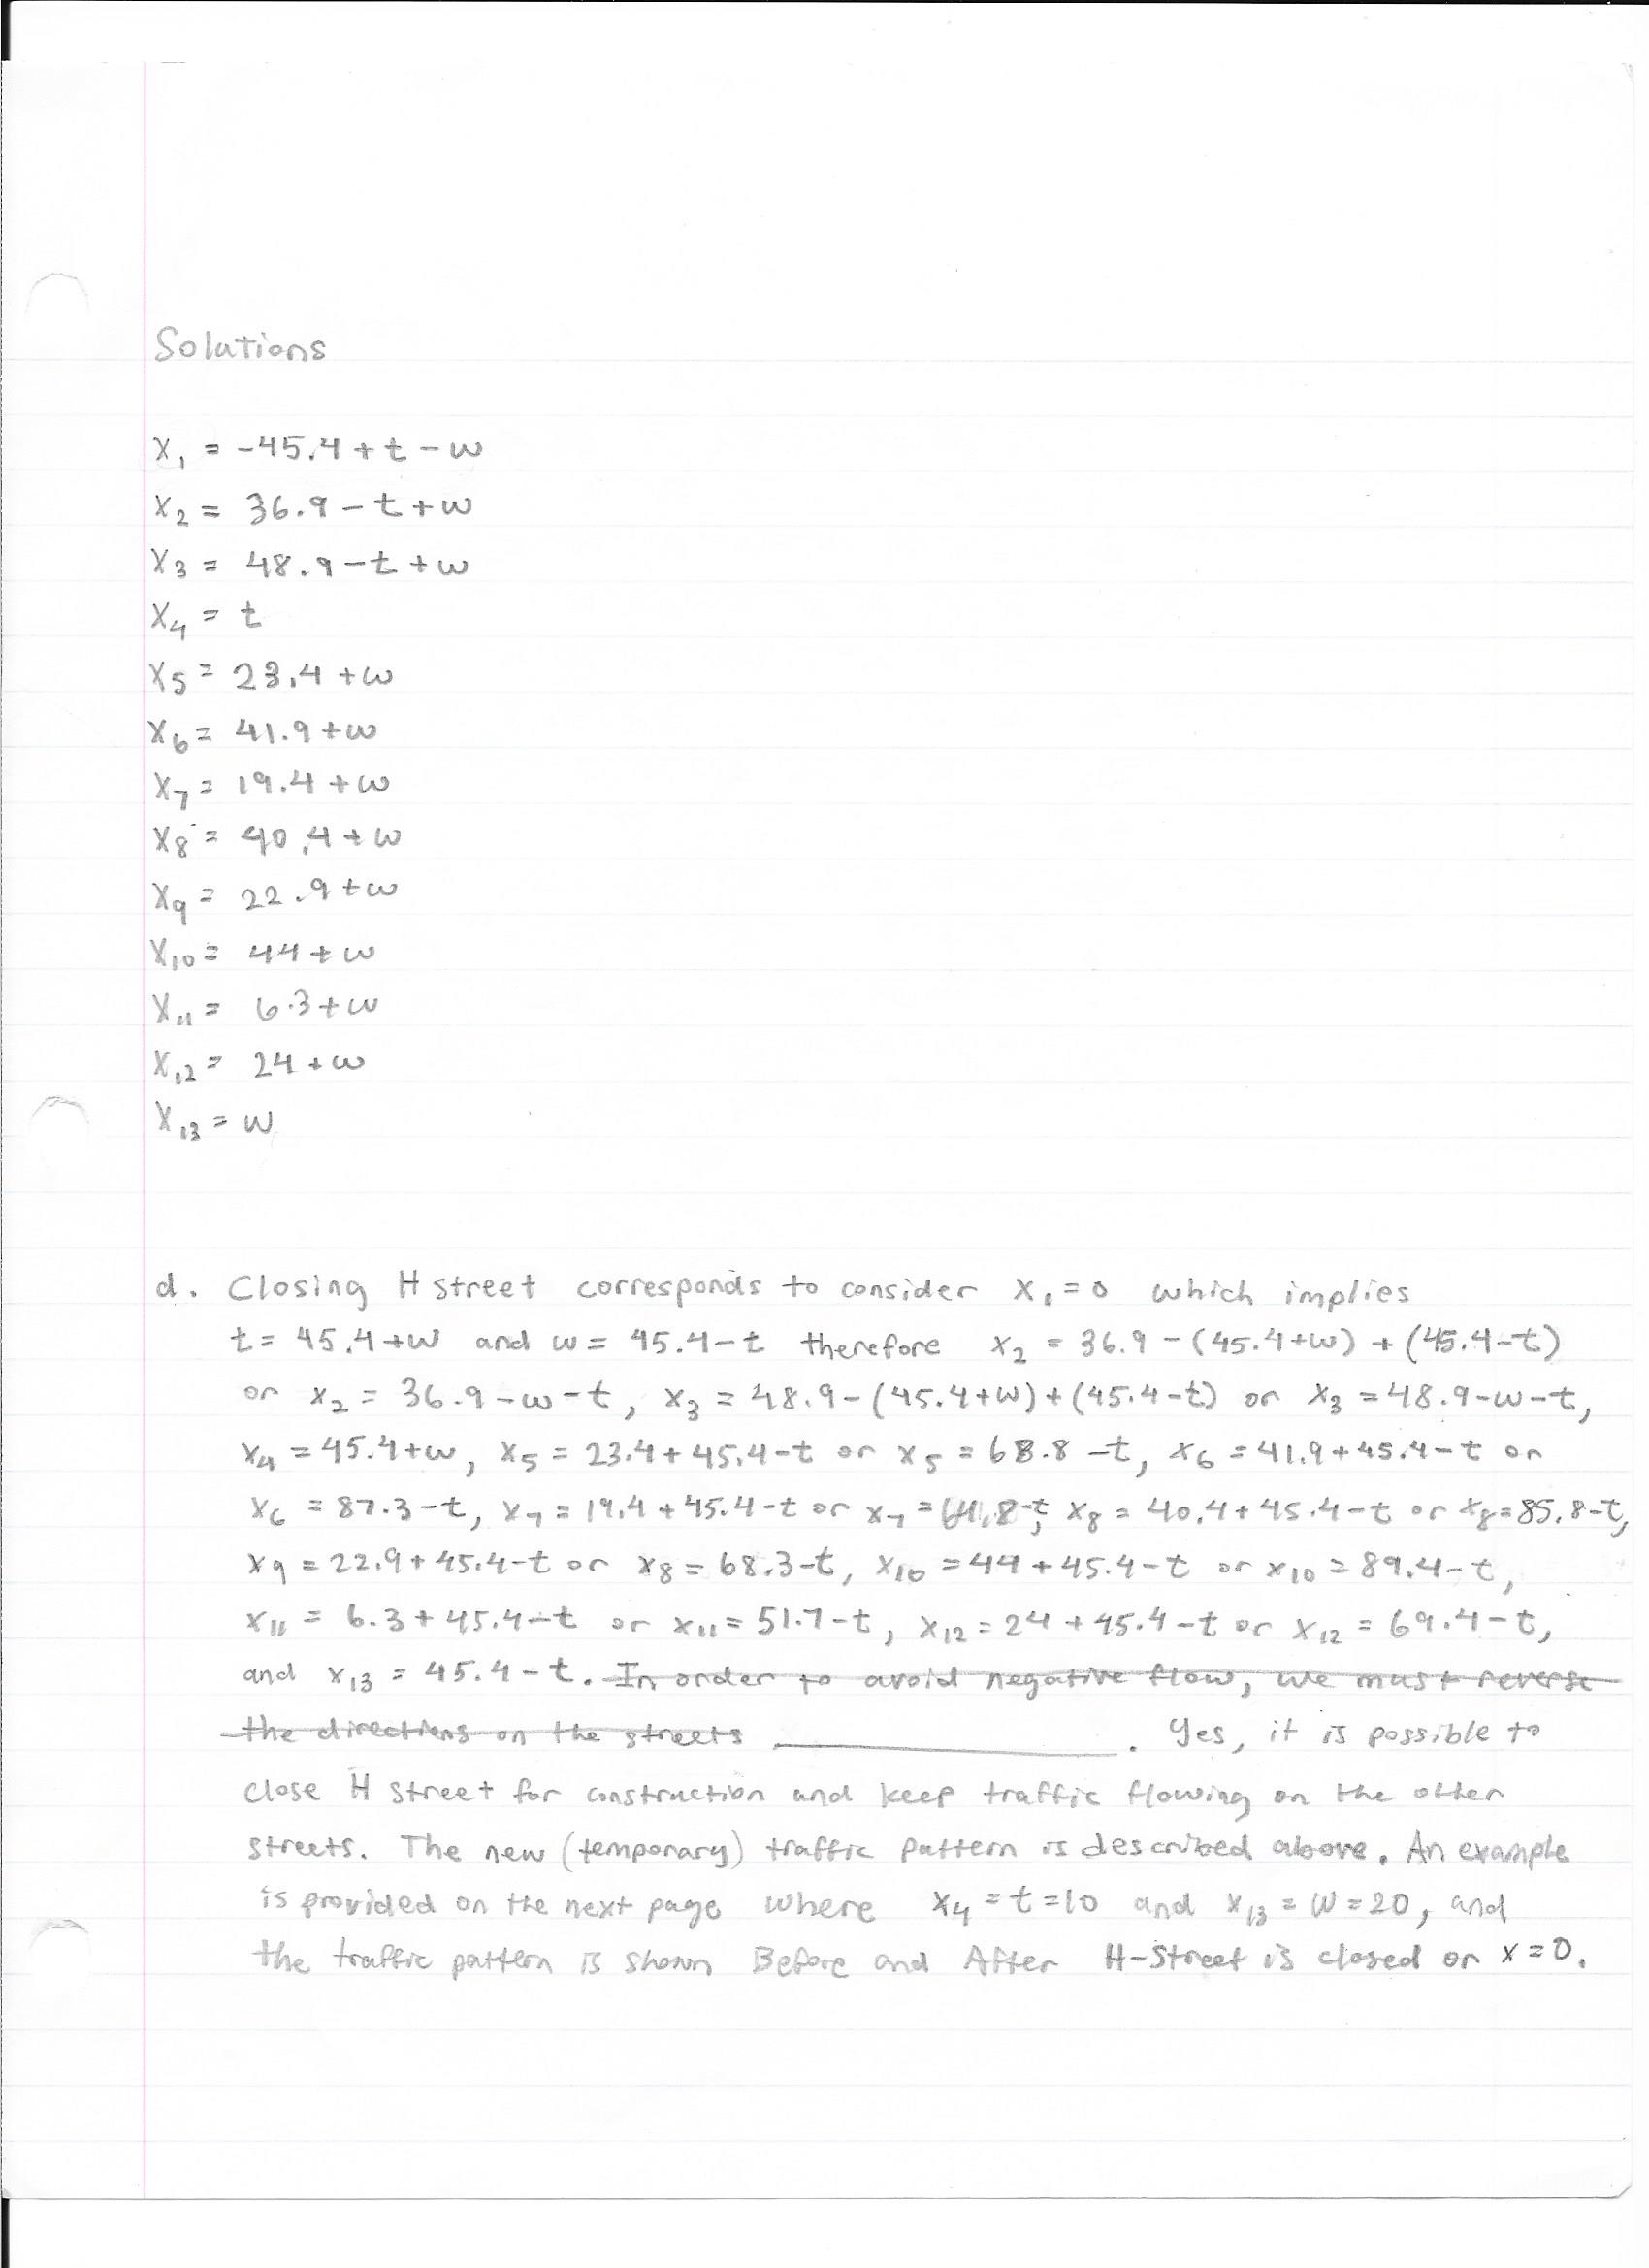 Solutions
x₁ = -45.4 + t - w
x₂ = 36.9 - t + w
x₃ = 48.9 - t + w
x₄ = t
x₅ = 23.4 + w
x₆ = 41.9 + w
x₇ = 19.4 + w
x₈ = 40.4 + w
x₉ = 22.9 + w
x₁₀ = 44 + w
x₁₁ = 6.3 + w
x₁₂ = 24 + w
x₁₃ = w
d. Closing H street corresponds to consider x₁ = 0 which implies
t = 45.4 + w and w = 45.4 - t therefore x₂ = 36.9 - (45.4 + w) + (45.4 - t)
or x₂ = 36.9 - w - t, x₃ = 48.9 - (45.4 + w) + (45.4 - t) or x₃ = 48.9 - w - t,
x₄ = 45.4 + w, x₅ = 23.4 + 45.4 - t or x₅ = 68.8 - t, x₆ = 41.9 + 45.4 - t or
x₆ = 87.3 - t, x₇ = 19.4 + 45.4 - t or x₇ = 64.8 - t, x₈ = 40.4 + 45.4 - t or x₈ = 85.8 - t,
x₉ = 22.9 + 45.4 - t or x₈ = 68.3 - t, x₁₀ = 44 + 45.4 - t or x₁₀ = 89.4 - t,
x₁₁ = 6.3 + 45.4 - t or x₁₁ = 51.7 - t, x₁₂ = 24 + 45.4 - t or x₁₂ = 69.4 - t,
and x₁₃ = 45.4 - t. In order to avoid negative flow, we must reverse
the directions on the streets ________. Yes, it is possible to
close H street for construction and keep traffic flowing on the other
streets. The new (temporary) traffic pattern is described above. An example
is provided on the next page where x₄ = t = 10 and x₁₃ = w = 20, and
the traffic pattern is shown Before and After H-Street is closed or x = 0.